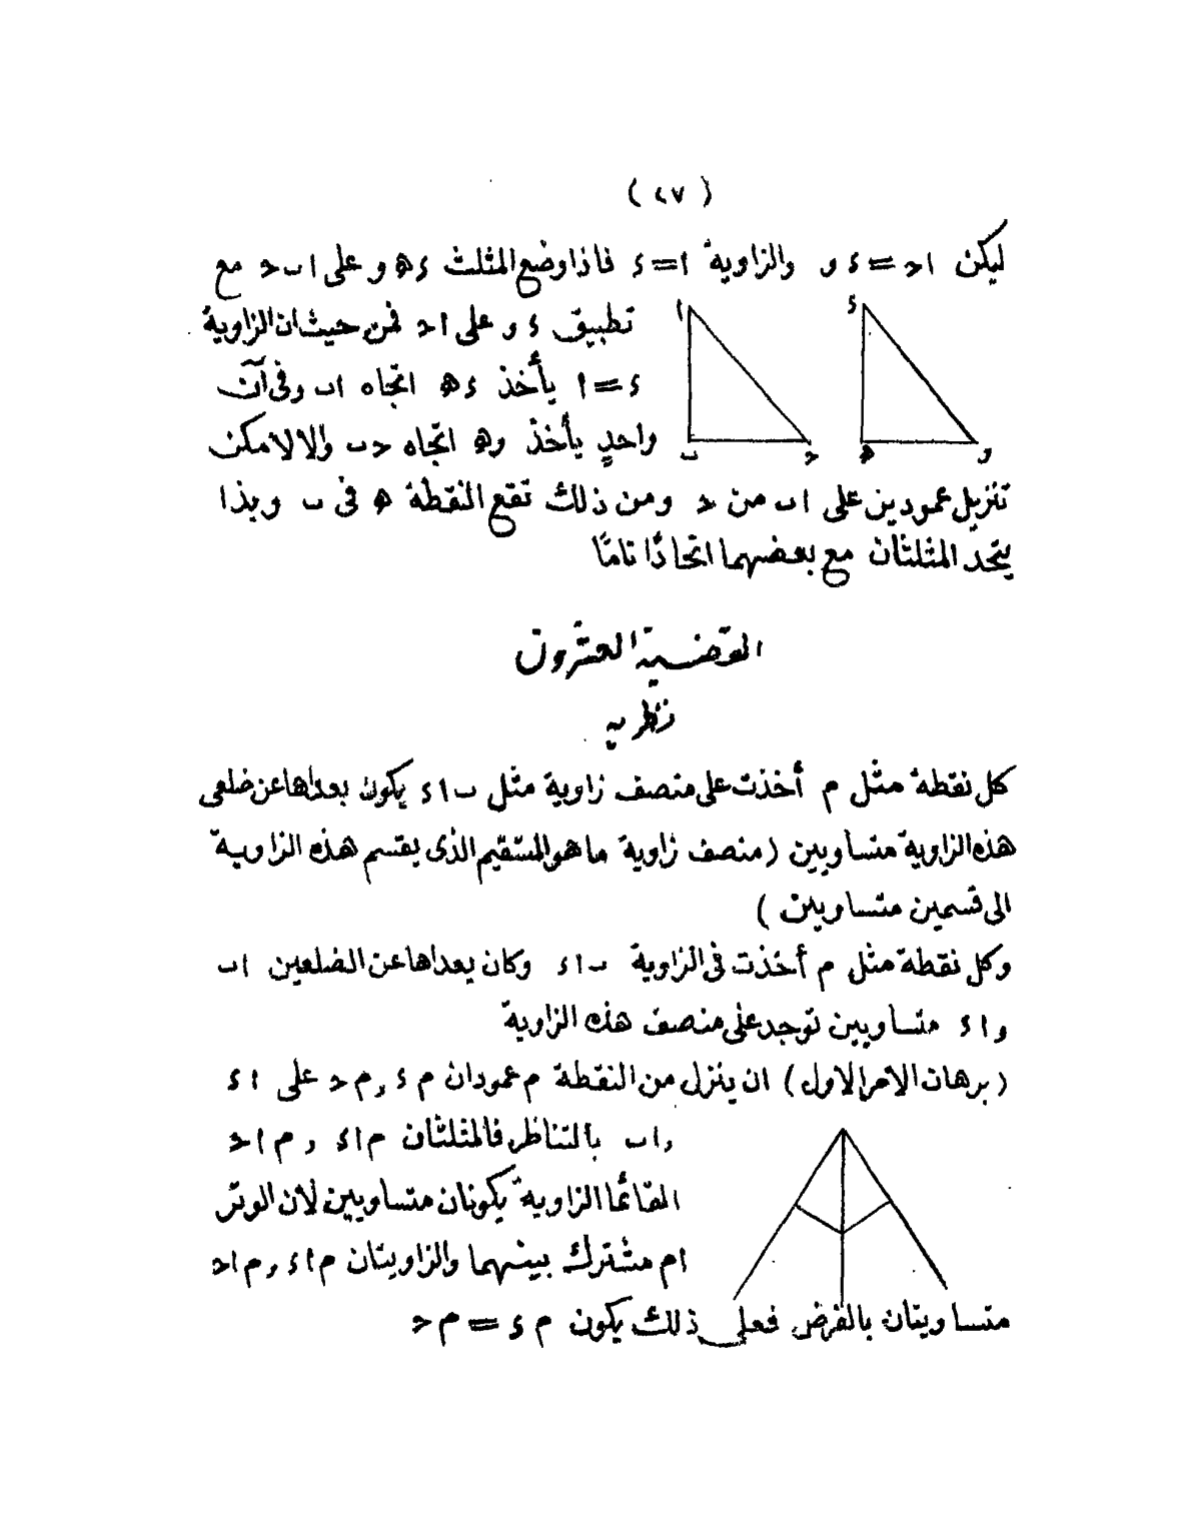 ( ٢٧ )
ليكن ا حـ = ء و والزاوية ا = ء فاذا وضع المثلث ء هـ و على ا ب حـ مع
تطبيق ء و على ا حـ فمن حيث ان الزاوية
ء = ا يأخذ ء هـ اتجاه ا ب وفى آن
واحدٍ يأخذ و هـ اتجاه حـ ب والا لامكن
تنزيل عمودين على ا ب من حـ ومن ذلك تقع النقطة هـ فى ب وبذا
يتحد المثلثان مع بعضهما اتحادًا تامًا
ا
ب
حـ
ء
هـ
و
القضية العشرون
نظرية
كل نقطة مثل م أخذت على منصف زاوية مثل ب ا ء يكون بعداها عن ضلعى
هذه الزاوية متساويين (منصف زاوية ما هو المستقيم الذى يقسم هذه الزاوية
الى قسمين متساويين )
وكل نقطة مثل م أخذت فى الزاوية ب ا ء وكان بعداها عن الضلعين ا ب
و ا ء متساويين توجد على منصف هذه الزاوية
(برهان الامر الاول) ان ينزل من النقطة م عمودان م ء و م حـ على ا ء
و ا ب بالتناظر فالمثلثان م ا ء و م ا حـ
القائما الزاوية يكونان متساويين لأن الوتر
ا م مشترك بينهما والزاويتان م ا ء و م ا حـ
متساويتان بالفرض فعلى ذلك يكون م ء = م حـ